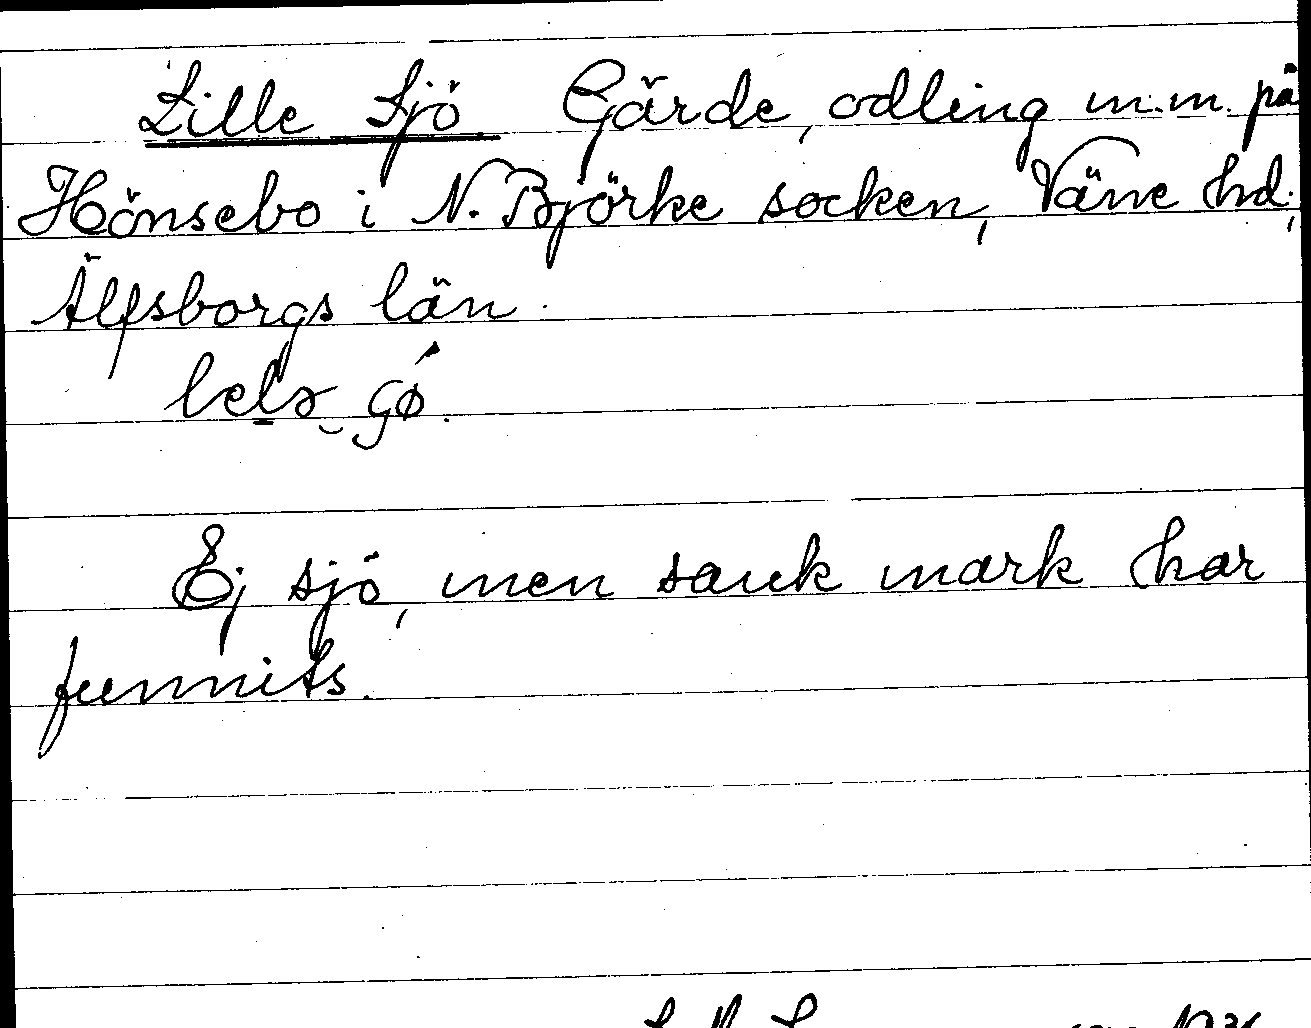 Lille Sjö Gärde, odling m.m. på
Hönsebo i N. Björke socken, Väne hd,
Älfsborgs län.
Ej sjö, men sank mark har
funnits.